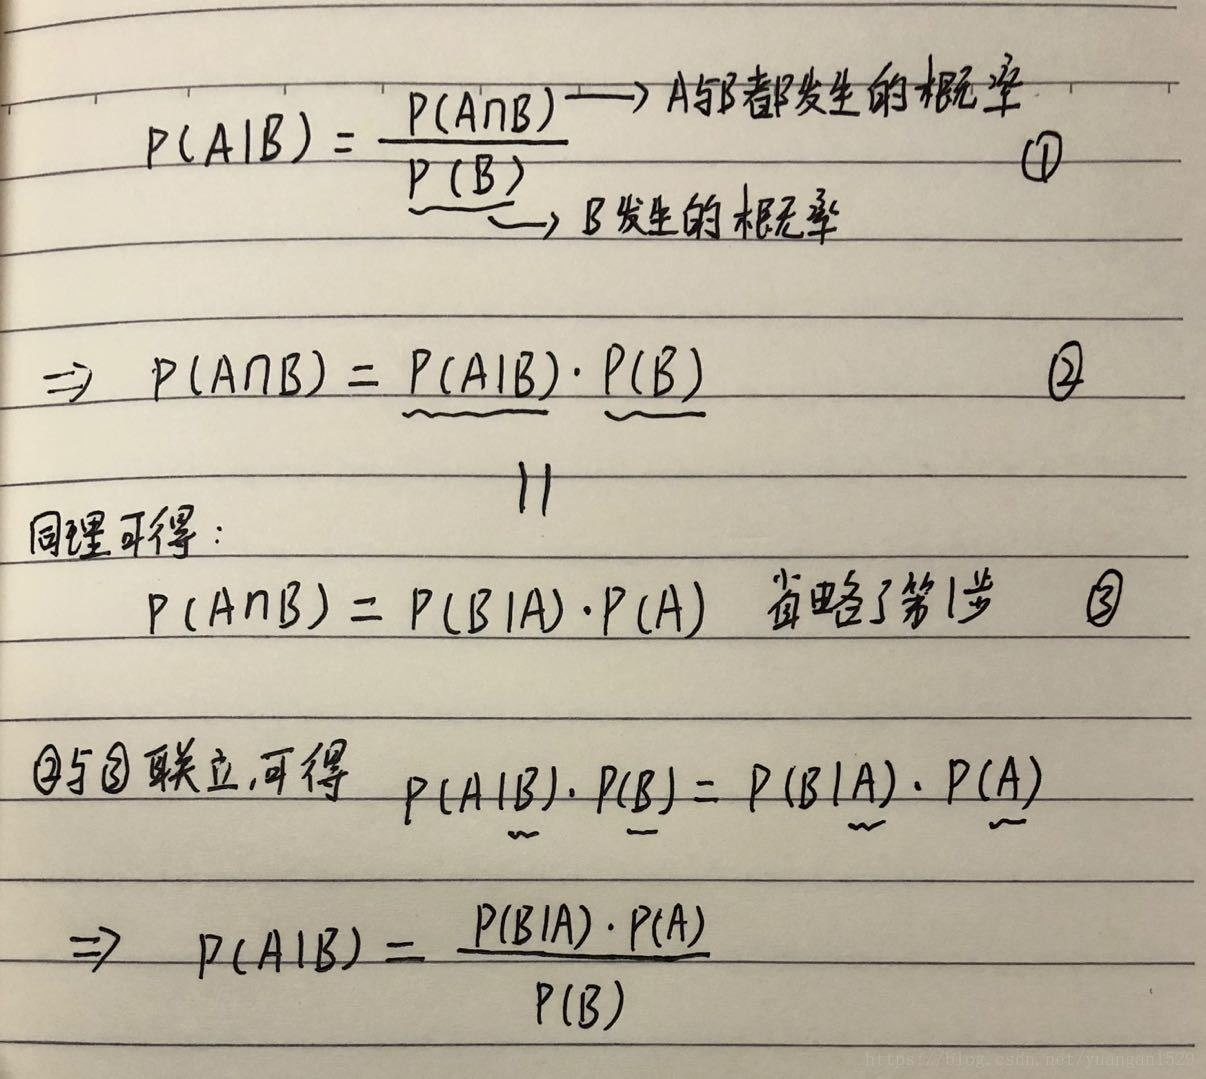 P(A|B) = P(A∩B) / P(B) ①
→ A与B都发生的概率
→ B发生的概率
⇒ P(A∩B) = P(A|B)·P(B) ②
=
同理可得:
P(A∩B) = P(B|A)·P(A) 省略了第1步 ③
②与③联立,可得 P(A|B)·P(B) = P(B|A)·P(A)
⇒ P(A|B) = P(B|A)·P(A) / P(B)
https://blog.csdn.net/yuangan1529